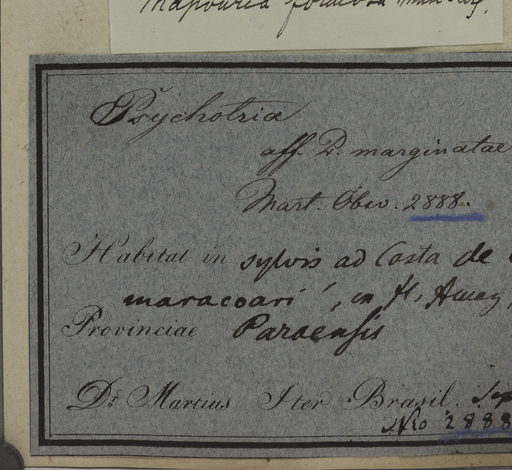 Mapouria foliosa
Psychotria
aff. P. marginatae
Mart. Obs. 2888.
Habitat in sylvis ad Costa de
maracoari, in fl. Amaz
Provinciae Paraensis
Dr. Martius Iter Brasil. Sep
Nro 2888